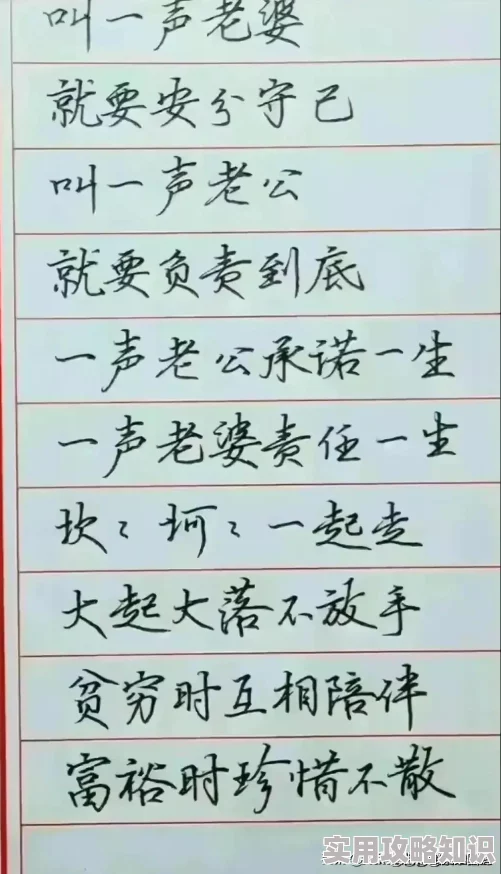 叫一声老婆
就要安分守己
叫一声老公
就要负责到底
一声老公承诺一生
一声老婆责任一生
坎々坷々一起走
大起大落不放手
贫穷时互相陪伴
富裕时珍惜不散
实用攻略知识